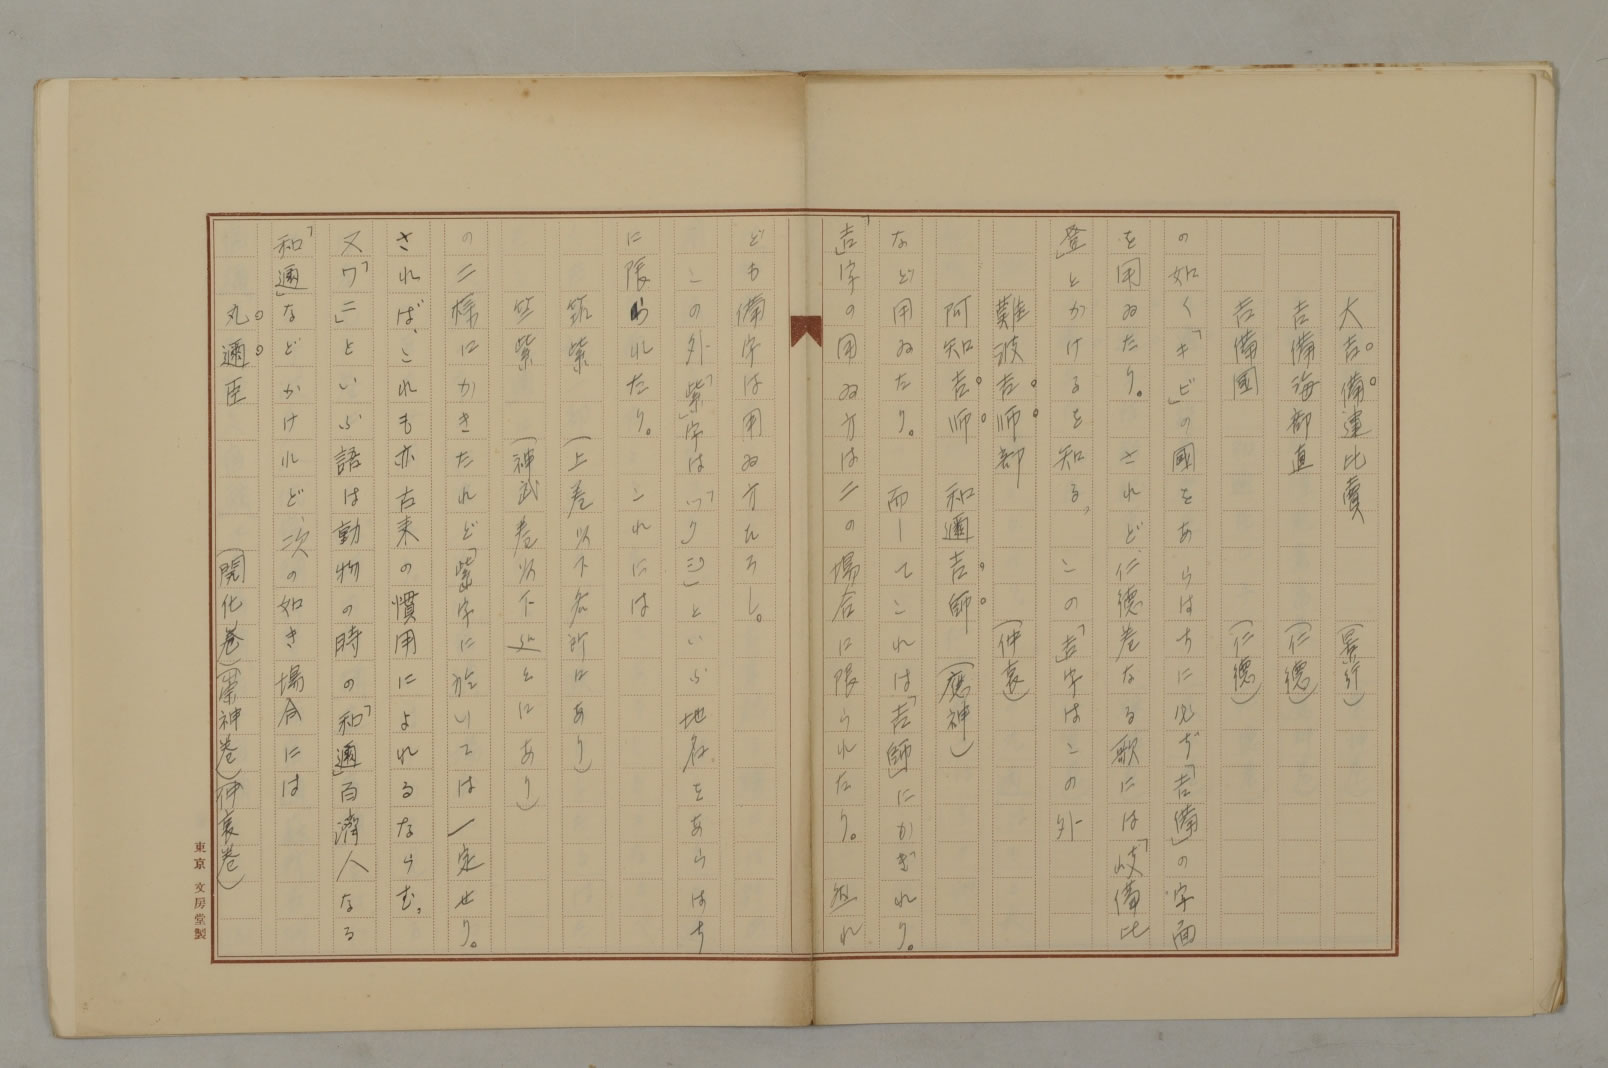 大吉備建比賣　（景行）
吉備海部直　（仁德）
吉備國　（仁德）
の如く「キビ」の國をあらはすに必ず「吉備」の字面
を用ゐたり。されど仁德卷なる歌には「岐備比
登」とかけるを知る。この「吉」字はこの外
難波吉師部　（仲哀）
阿知吉師　和邇吉師　（應神）
など用ゐたり。而してこれは「吉師」にかぎれり。
「吉」字の用ゐ方は二の場合に限られたり。然れ
ども備字は用ゐ方ひろし。
この外「紫」字は「ツクシ」といふ地名をあらはす
に限られたり。これには
筑紫　（上卷以下各所にあり）
竺紫　（神武卷以下処々にあり）
の二樣にかきたれど「紫」字に於いては一定せり。
されば、これも亦古來の慣用によれるならむ。
又「ワニ」といふ語は動物の時の「和邇」百濟人なる
「和邇」などかけれど、次の如き場合には
丸邇臣　（開化卷）（崇神卷）（仲哀卷）
東京 文房堂製